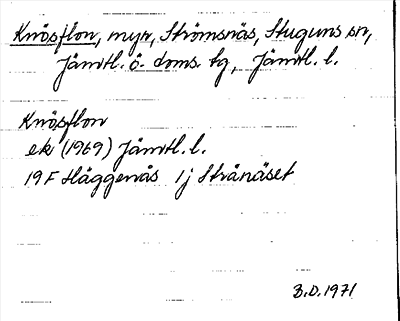 Knösflon, myr, Strömsnäs, Stuguns sn,
Jämtl. ö. doms. tg, Jämtl. l.
Knösflon
ek (1969) Jämtl. l.
19F Häggenås 1j Stranäset
B.D. 1971